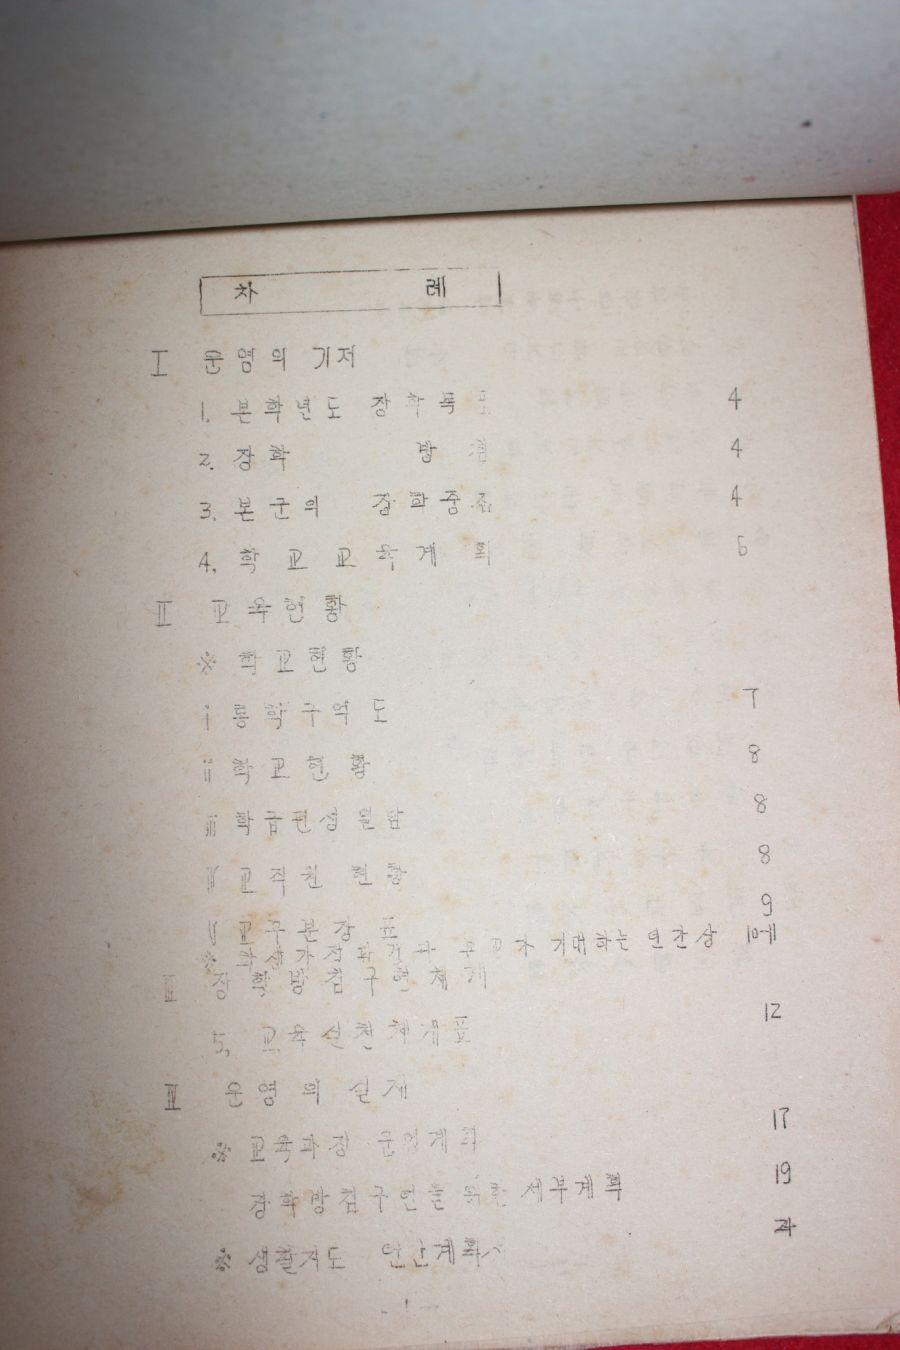 차 례
I 운영의 기저
1. 본학년도 장학목표 4
2. 장학 방침 4
3. 본군의 장학중점 4
4. 학교교육계획 5
II 교육현황
※ 학교현황
i 통학구역도 7
ii 학교현황 8
iii 학급편성 일람 8
iv 교직원 현황 8
v 교무분장표 9
※ 기대하는 인간상
III 장학방침구현체계
5. 교육실천체계표 12
III 운영의 실제
※ 교육과정 운영계획 17
장학방침구현을 위한 세부계획 19
※ 생활지도 연간계획
- 1 -